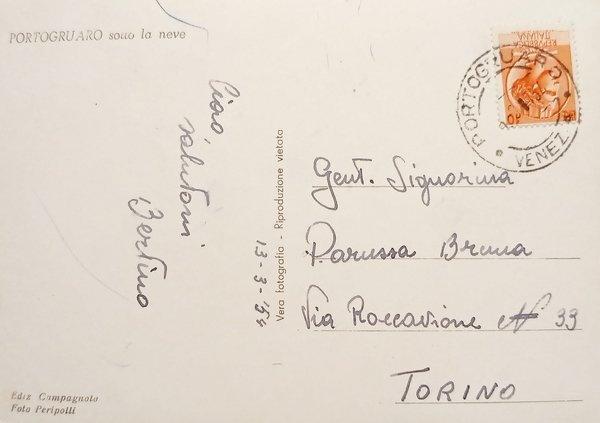 PORTOGRUARO sotto la neve
Ciao,
salutoni
Bertino
13-3-'54
Vera fotografia - Riproduzione vietata
REPVBBLICA
ITALIANA
PORTOGRUARO
VENEZ
Gent. Signorina
Parussa Bruna
Via Roccavione N 33
TORINO
Ediz Campagnolo
Foto Peripolli